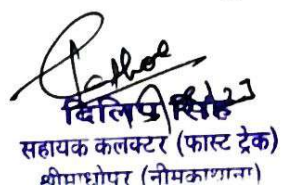 दिलिप सिंह
सहायक कलक्टर (फास्ट ट्रेक)
श्रीमाधोपुर (नीमकाथाना)